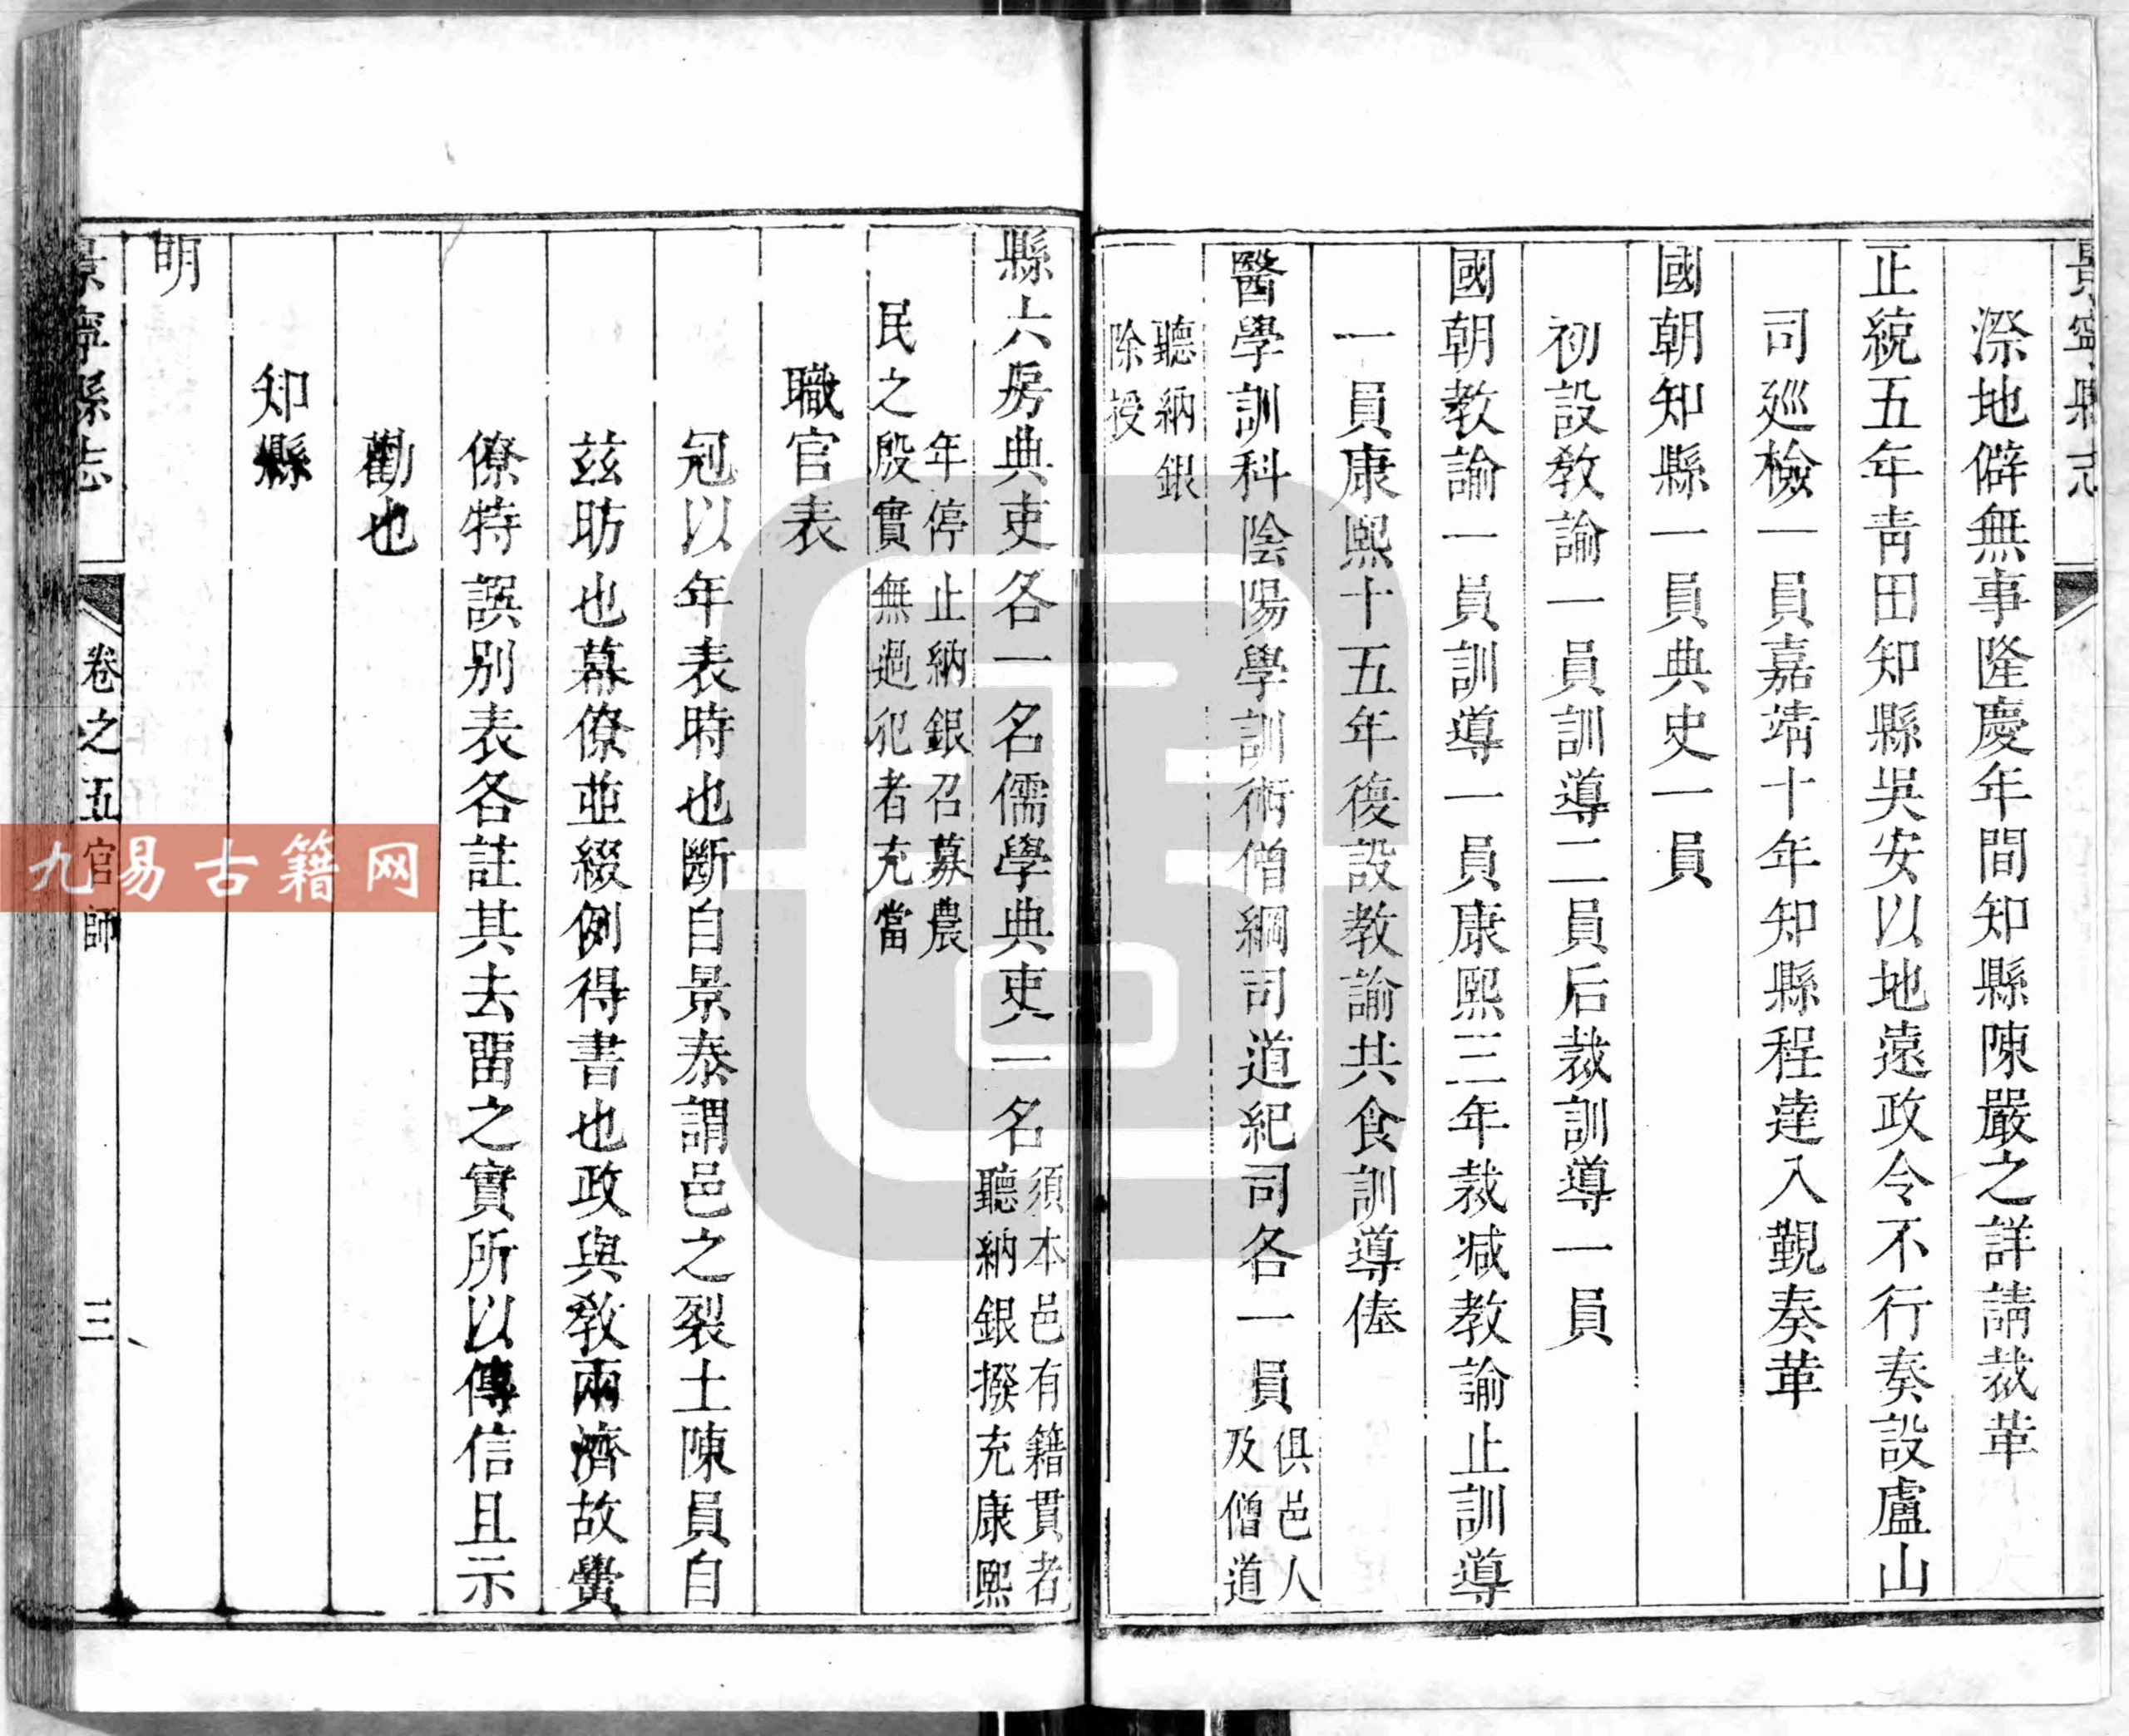 景寧縣志
深地僻無事隆慶年間知縣陳嚴之詳請裁革
正統五年靑田知縣吳安以地遠政令不行奏設盧山
司廵檢一員嘉靖十年知縣程達入覲奏革
國朝知縣一員典史一員
初設敎諭一員訓導二員后裁訓導一員
國朝教諭一員訓導一員康熙三年裁减教諭止訓導
一員康熙十五年復設教諭共食訓導俸
醫學訓科陰陽學訓術僧綱司道紀司各一員俱邑人及僧道
聽納銀除授
縣六房典吏各一名儒學典吏一名須本邑有籍貫者聽納銀撥充康熙
年停止納銀召募農民之殷實無過犯者充當
職官表
冠以年表時也斷自景泰謂邑之裂土陳員自
茲昉也幕僚並綴例得書也政與敎兩濟故黌
僚特譔别表各註其去畱之實所以傳信且示
勸也
知縣
明
景寧縣志
卷之五官師
三
九易古籍网